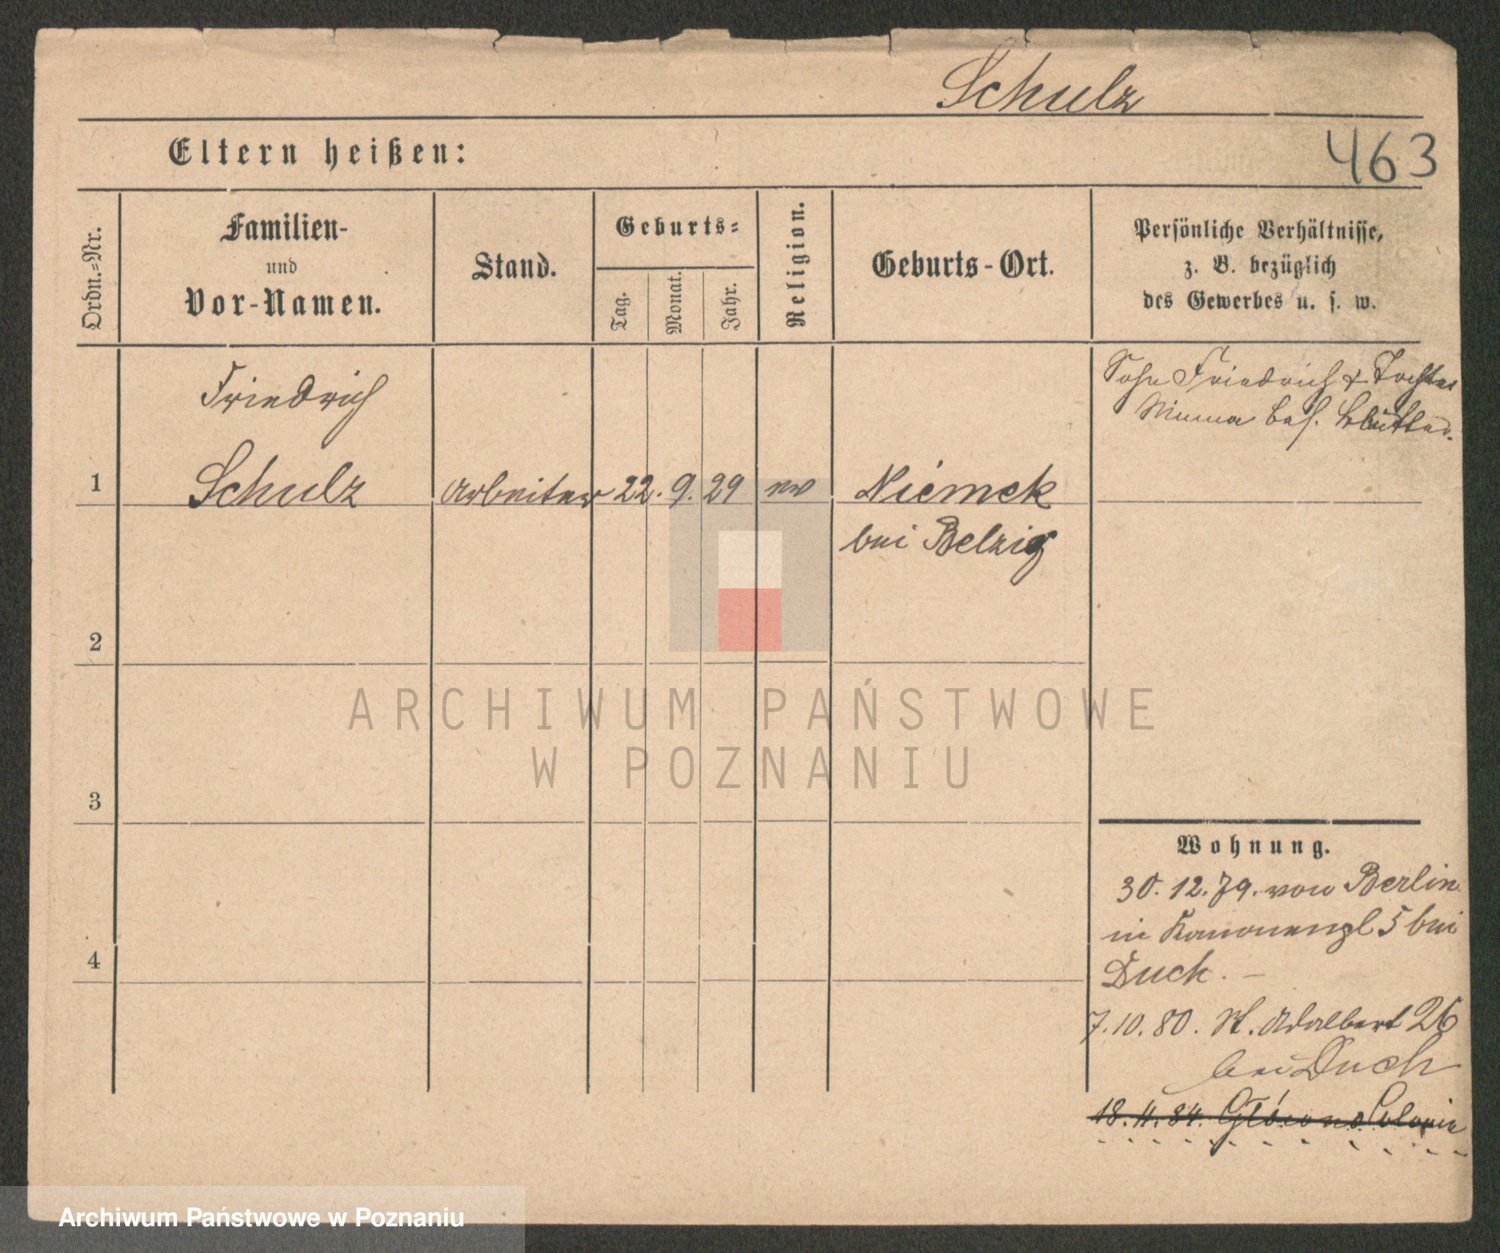 Schulz
463
Eltern heißen:
Ordn.-Nr.
Familien-
und
Vor-Namen.
Stand.
Geburts-
Tag.
Monat.
Jahr.
Religion.
Geburts-Ort.
Persönliche Verhältnisse,
z. B. bezüglich
des Gewerbes u. s. w.
Friedrich
Sohn Friedrich & Tochter
Minna bes. Blätter.
1 Schulz Arbeiter 22. 9. 29 ev Niemek
bei Belzig
2
3
4
Wohnung.
30. 12. 79. von Berlin
in Kanonenpl 5 bei
Duch. –
7. 10. 80. St. Adalbert 26
bei Duch
18. 4. 84. Glówno Colonie
ARCHIWUM PAŃSTWOWE
W POZNANIU
Archiwum Państwowe w Poznaniu